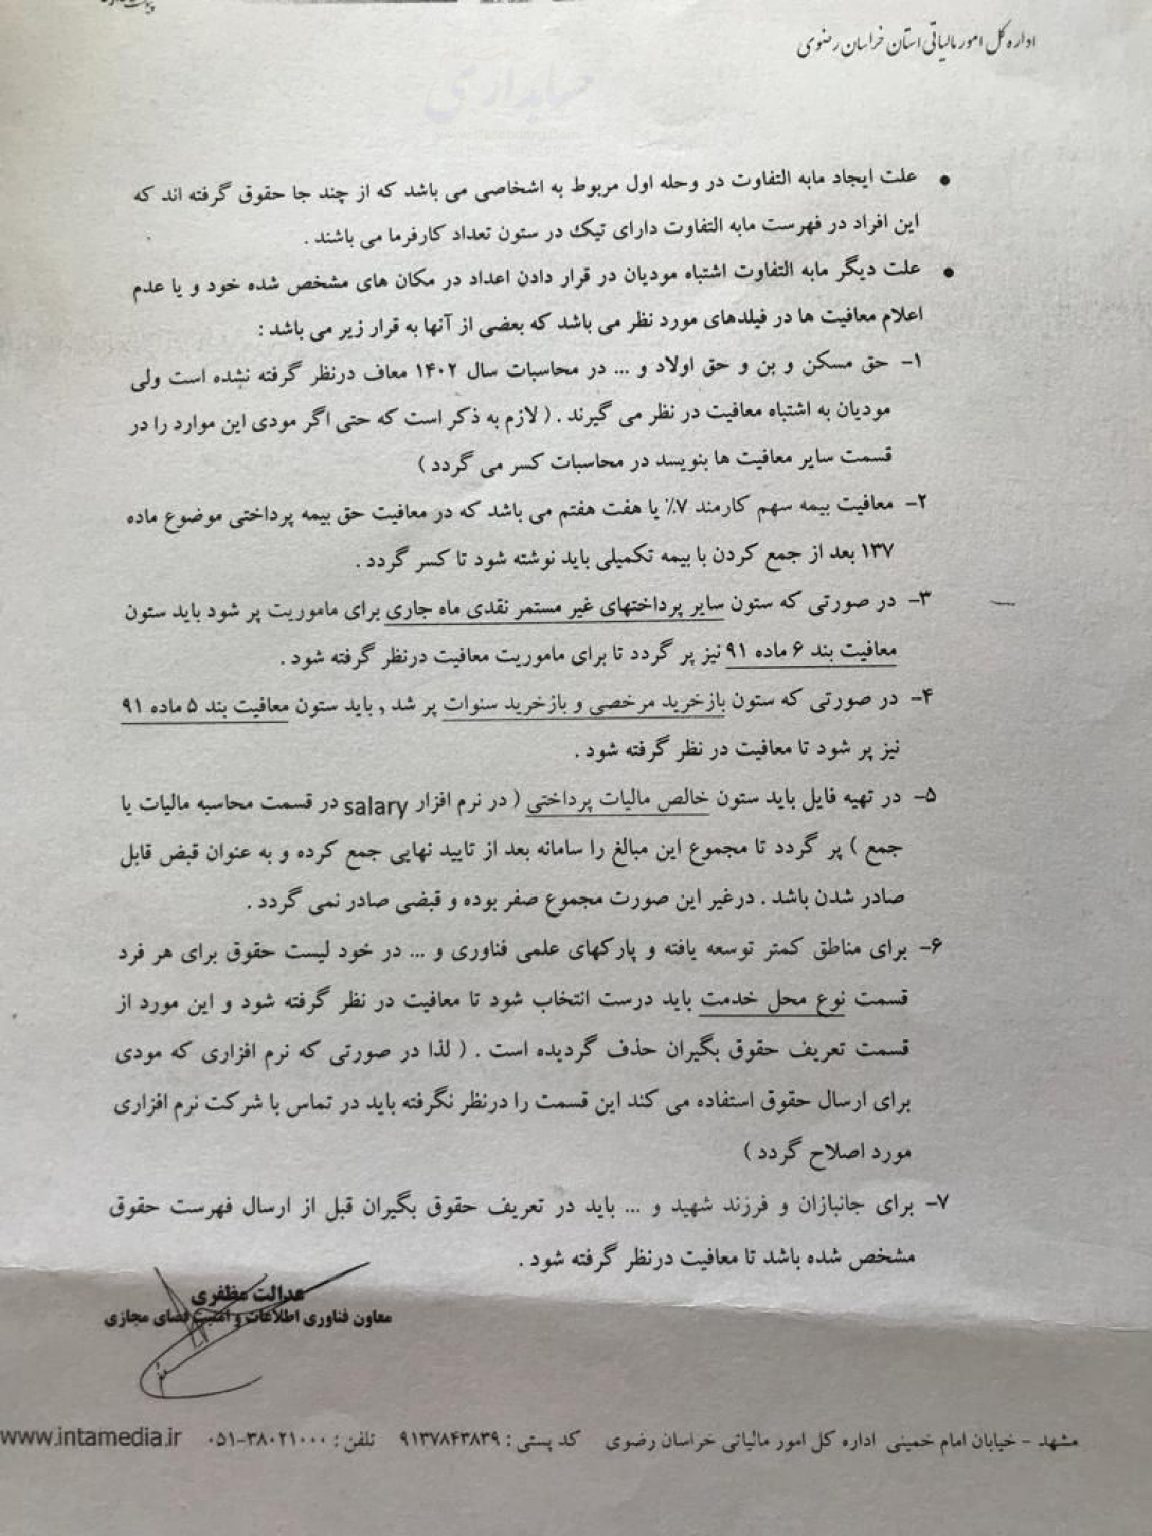 اداره کل امور مالیاتی استان خراسان رضوی
حسابداری
علت ایجاد مابه التفاوت در وحله اول مربوط به اشخاصی می باشد که از چند جا حقوق گرفته اند که
این افراد در فهرست مابه التفاوت دارای تیک در ستون تعداد کارفرما می باشند .
علت دیگر مابه التفاوت اشتباه مودیان در قرار دادن اعداد در مکان های مشخص شده خود و یا عدم
اعلام معافیت ها در فیلدهای مورد نظر می باشد که بعضی از آنها به قرار زیر می باشد :
۱- حق مسکن و بن و حق اولاد و ... در محاسبات سال ۱۴۰۲ معاف درنظر گرفته نشده است ولی
مودیان به اشتباه معافیت در نظر می گیرند . ( لازم به ذکر است که حتی اگر مودی این موارد را در
قسمت سایر معافیت ها بنویسد در محاسبات کسر می گردد )
۲- معافیت بیمه سهم کارمند ۷٪ یا هفت هفتم می باشد که در معافیت حق بیمه پرداختی موضوع ماده
۱۳۷ بعد از جمع کردن با بیمه تکمیلی باید نوشته شود تا کسر گردد .
۳- در صورتی که ستون سایر پرداختهای غیر مستمر نقدی ماه جاری برای ماموریت پر شود باید ستون
معافیت بند ۶ ماده ۹۱ نیز پر گردد تا برای ماموریت معافیت درنظر گرفته شود .
۴- در صورتی که ستون بازخرید مرخصی و بازخرید سنوات پر شد , باید ستون معافیت بند ۵ ماده ۹۱
نیز پر شود تا معافیت در نظر گرفته شود .
۵- در تهیه فایل باید ستون خالص مالیات پرداختی ( در نرم افزار salary در قسمت محاسبه مالیات یا
جمع ) پر گردد تا مجموع این مبالغ را سامانه بعد از تایید نهایی جمع کرده و به عنوان قبض قابل
صادر شدن باشد . درغیر این صورت مجموع صفر بوده و قبضی صادر نمی گردد .
۶- برای مناطق کمتر توسعه یافته و پارکهای علمی فناوری و ... در خود لیست حقوق برای هر فرد
قسمت نوع محل خدمت باید درست انتخاب شود تا معافیت در نظر گرفته شود و این مورد از
قسمت تعریف حقوق بگیران حذف گردیده است . ( لذا در صورتی که نرم افزاری که مودی
برای ارسال حقوق استفاده می کند این قسمت را درنظر نگرفته باید در تماس با شرکت نرم افزاری
مورد اصلاح گردد )
۷- برای جانبازان و فرزند شهید و ... باید در تعریف حقوق بگیران قبل از ارسال فهرست حقوق
مشخص شده باشد تا معافیت درنظر گرفته شود .
عدالت مظفری
معاون فناوری اطلاعات و امنیت فضای مجازی
مشهد - خیابان امام خمینی اداره کل امور مالیاتی خراسان رضوی کد پستی : ۹۱۳۷۸۴۳۸۳۹ تلفن : ۰۵۱-۳۸۰۲۱۰۰۰ www.intamedia.ir